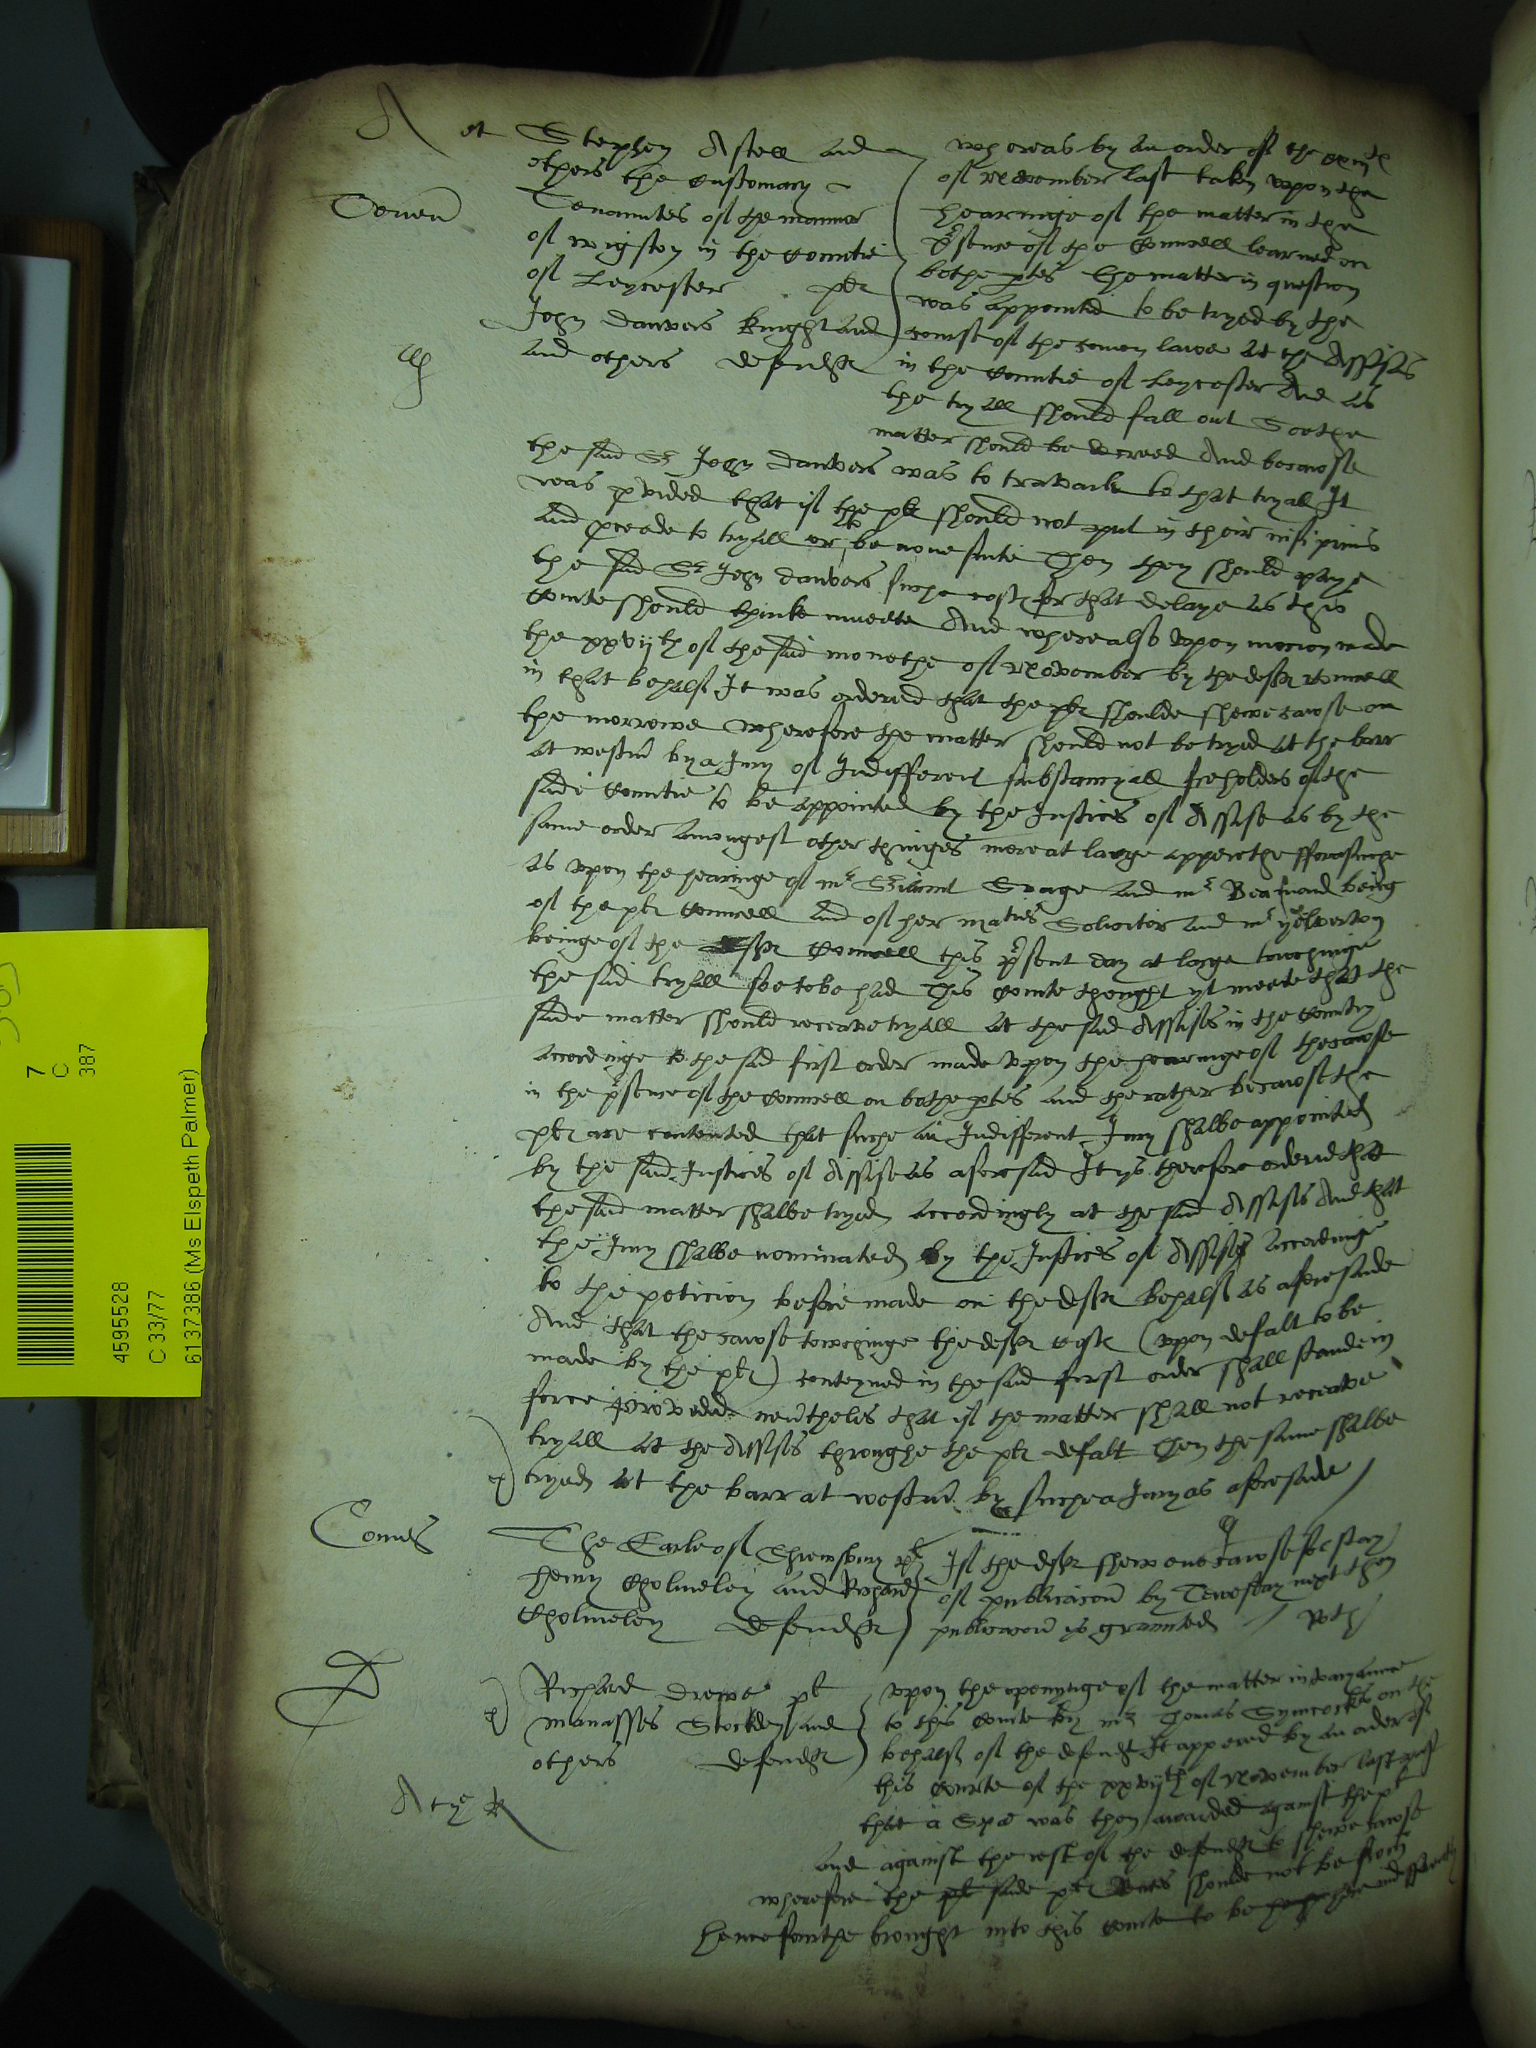 A et Stephen Astell and
others the customary
Tenanntes of the mannor
of wigston in the Countie
of Leycester plt
John Danvers knight and
and others defendtes
whereas by an order of the
of november last taken upon the
hearinge of the matter in the
psence of the Counsell learned on
bothe ptes The matter in question
was appointed to be tryed by the
course of the comon lawe at the Assises
in the Countie of Leycester And as
the tryall should fall out Soe the
matter should be decreed And becawse
the said Sr John Danvers was to travaile to that tryall It
was pvided that if the plt should not put in their nisi prius
and pceade to tryall or be none suite Then they should paye
the said Sr John Danvers suche costes for that delaye as this
Courte should thinke meete And where also upon mocion made
the xxvijth of the said monethe of November by the deftes Counsell
in that behalf It was ordered that the plt shoulde shewe cawse on
the morrowe wherefore the matter should not be tryed at the barr
at westm by a Jury of Indifferent substancyall freholders of the
saide Countie to be appointed by the Justices of Assise as by the
same order amongest other thinges more at large appearethe fforasmuche
as upon the hearinge of mr Sriaunt Snage and mr Beamond being
of the plt Counsell And of her maties Solicitor and mr yelverton
beinge of the deftes Counsell this psent day at large towchinge
the said tryall soe to be had This Courte thought yt meete that the
saide matter should receave tryall at the said Assises in the Countrey
accordinge to the said first order made upon the hearinge of the cawse
in the psence of the Counsell on bothe ptes and the rather becawse the
plt are contented that suche an Indifferent Jury shalbe appointed
by the said Justices of Assise as aforesaid It ys therefore ordered that
the said matter shalbe tryed accordingly at the said Assises And that
the Jury shalbe nominated by the Justices of Assises accordinge
to the peticion before made on the deftes behalf as aforesaide
And that the cawse towchinge the deftes costes (upon defalt to be
made by the plt) conteyned in the said first order shall stande in
force provided nevtheles that if the matter shall not receave
tryall at the Assises throughe the plt defalt Then the same shalbe
tryed at the barr at westm by suche a Jury as aforesaide
Comes The Earle of Shrewsbury plt
henry Cholmeley and Richard
Cholmeley defendtes
If the deftes shew not cawse for stay
of publicacion by Tewesday next then
publicacion is graunted
Richard Drewe plt
manasses Stockden and
others defendtes
upon the openynge of the matter in varyaunce
to this Courte by mr Thomas Symcockes on the
behalf of the defendtes It appered by an order of
this Courte of the xxvijth of November last past
that a Spa was then awarded against the plt
and against the rest of the defendtes to shewe cawse
wherefore the plt saide plt shoulde not be from
hencefourthe brought into this Courte to be indifferently
4595528
C 33/77
6137386 (Ms Elspeth Palmer)
7
C
387